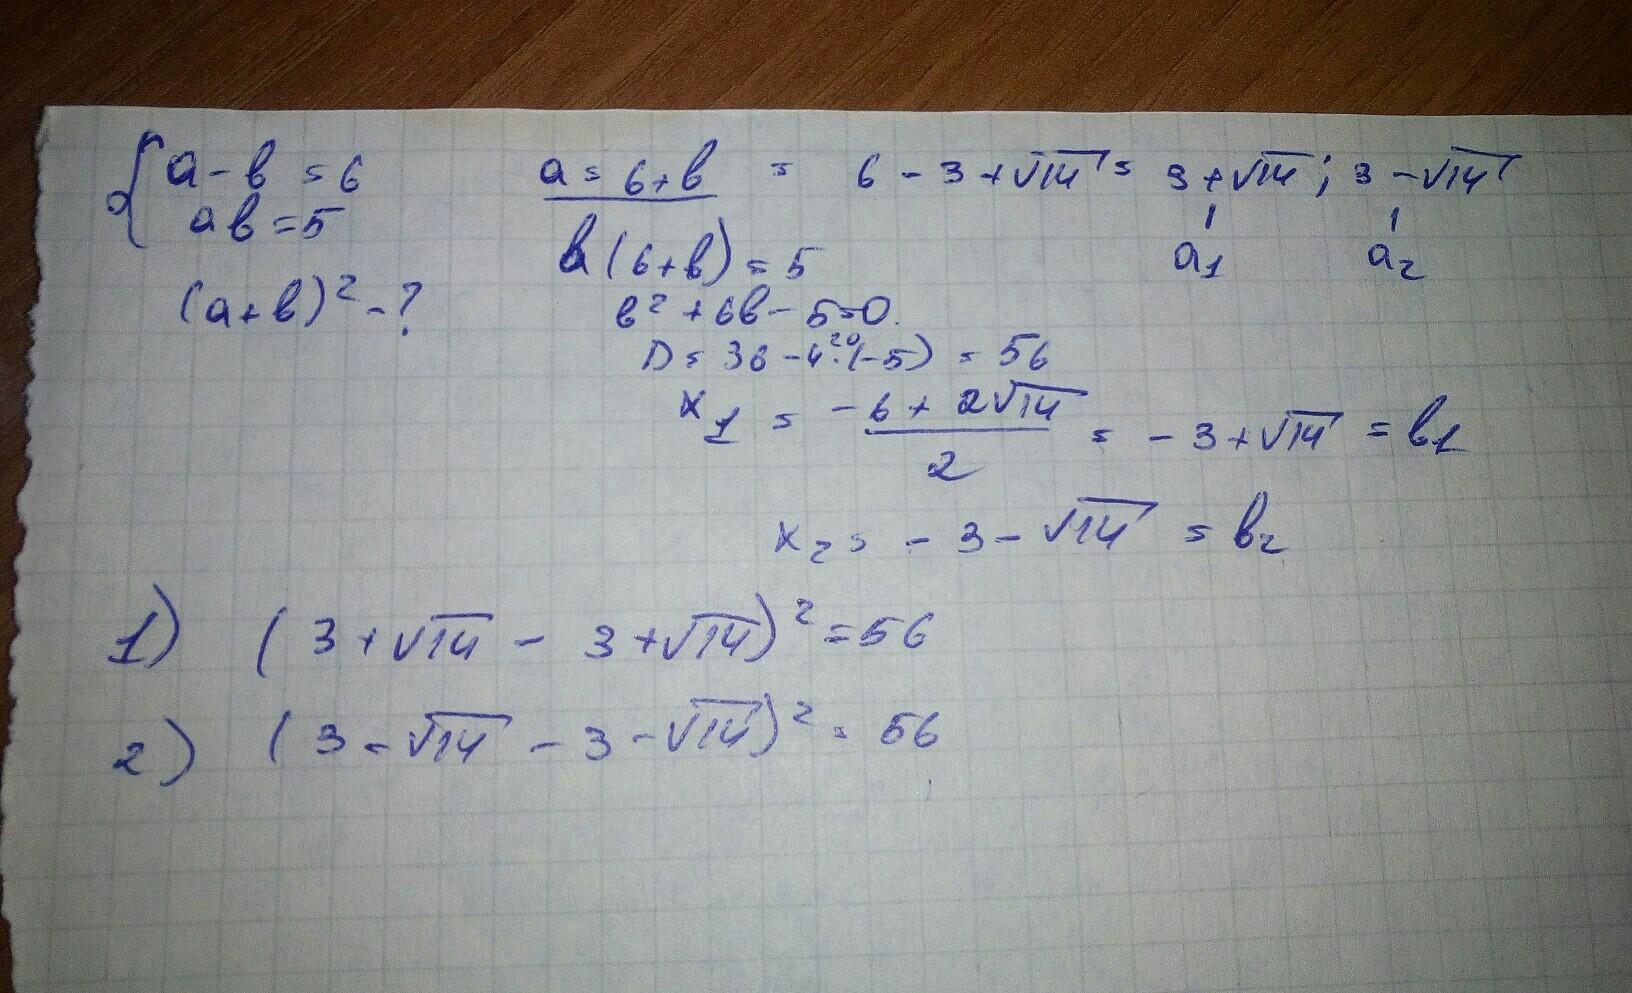 { a - b = 6
ab = 5
(a+b)² - ?
a = 6+b = 6 - 3 + √14 = 3 + √14 ; 3 - √14
a1 a2
b(6+b) = 5
b² + 6b - 5 = 0.
D = 36 - 4·(-5) = 56
20
x1 = (-6 + 2√14)/2 = -3 + √14 = b1
x2 = -3 - √14 = b2
1) (3 + √14 - 3 + √14)² = 56
2) (3 - √14 - 3 - √14)² = 56